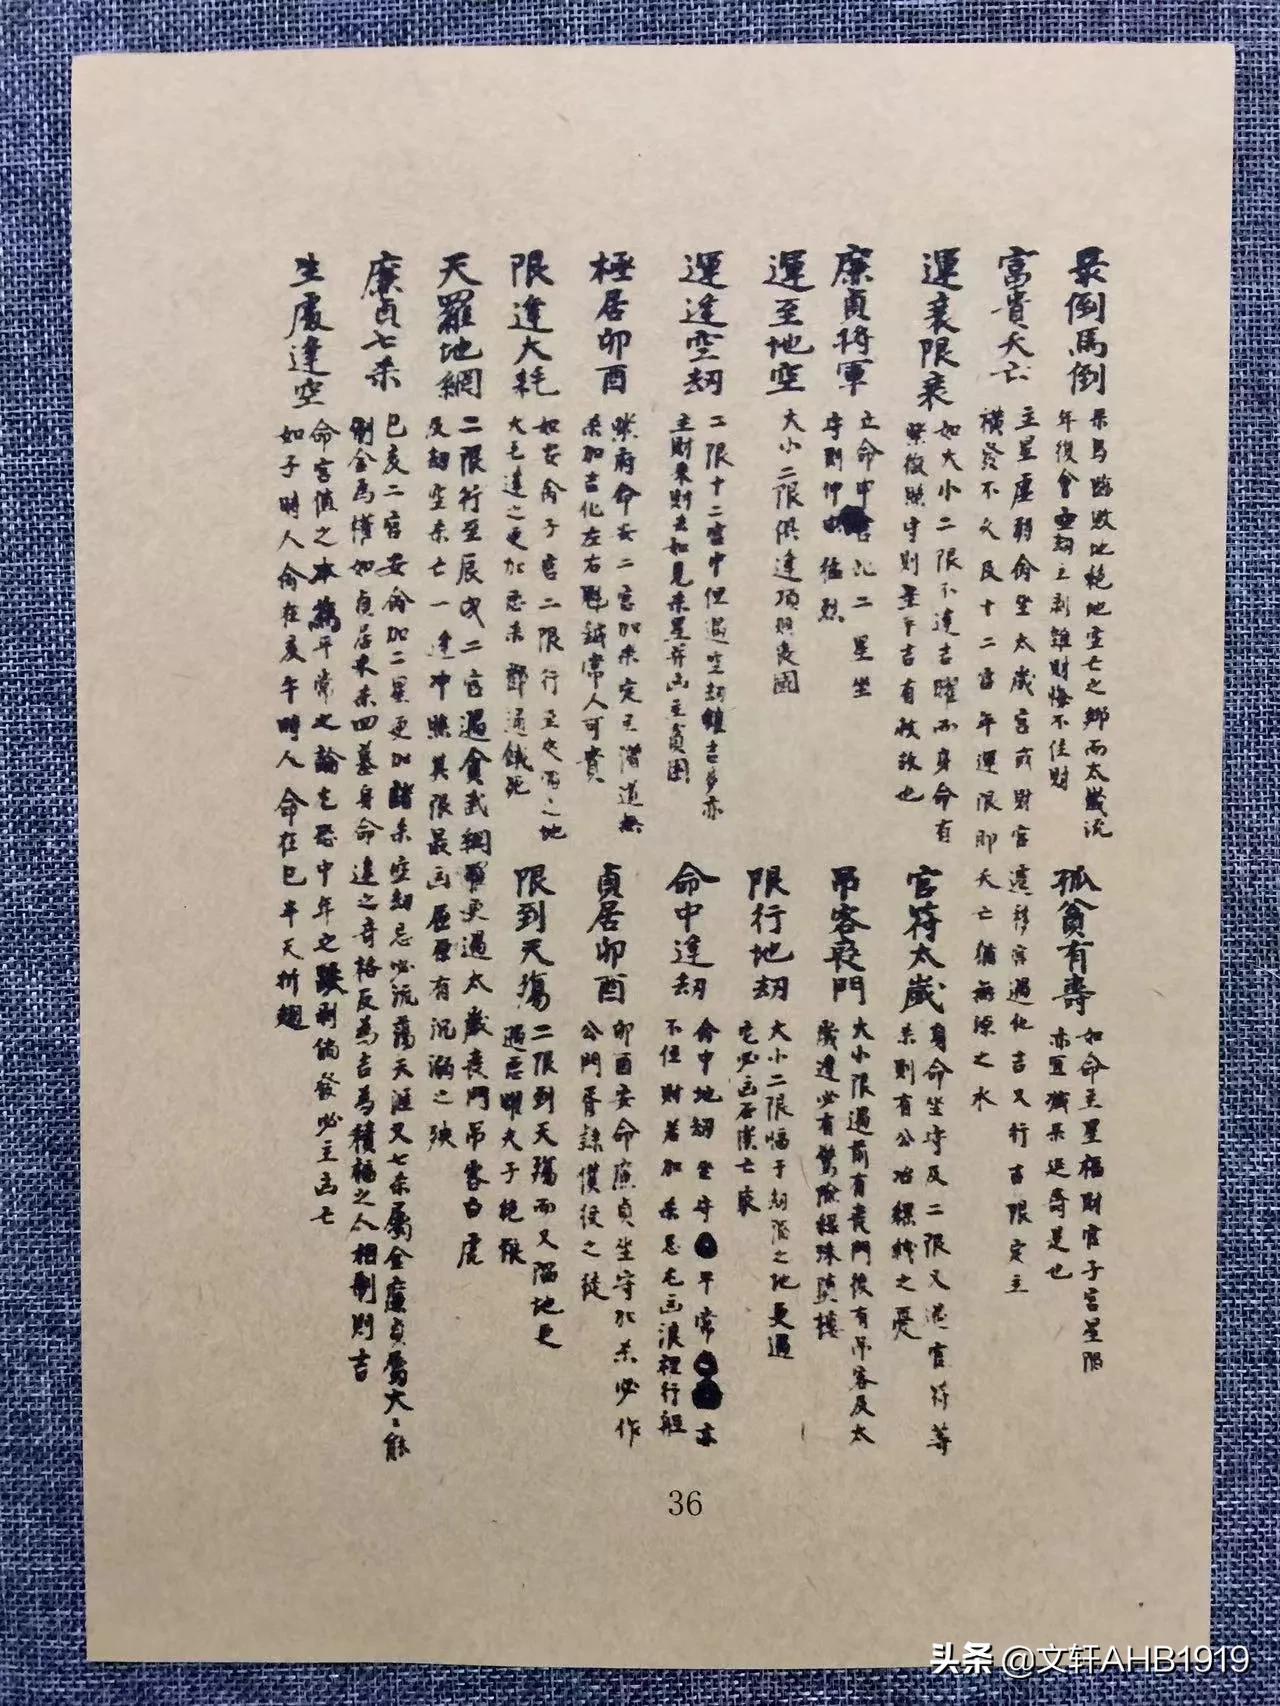 祿倒馬倒
祿馬臨敗地絕地空亡之鄉而太歲流
年後會劫主剥雜財悔不住財
孤貧有壽
如命主星福財官子宮星陷
亦宜減祿延壽是也
富貴夭亡
主星虛弱命坐太歲宮或財宮遷移宮遇化吉又行吉限定主
橫發不久及十二宮年運限即夭亡猶無源之水
運衰限衰
如大小二限不逢吉曜而身命有
紫微照守則平吉有救故也
官符太歲
身命坐守及二限又逢官符等
杀則有公冶縲絏之憂
廉貞將軍
立命中宮二星坐
守則仲猛烈
吊客喪門
大小限遇前有喪門後有吊客及太
歲逢必有驚險綠珠墜樓
運至地空
大小二限俱逢項羽喪國
限行地劫
大小二限臨于劫陷之地更遇
它必凶石崇亡家
運逢空劫
二限十二宮中但遇空劫雖吉多亦
主財來財去如見杀星并凶主貧困
命中逢劫
命中地劫坐守平常亦
不住財若加杀忌尤凶浪裡行船
極居卯酉
紫府命安二宮加杀定主僧道無
杀加吉化左右魁鉞常人可貴
貞居卯酉
卯酉安命廉貞坐守加杀必作
公門胥隸僕役之徒
限逢大耗
如安命子宮二限行至之地
大毛逢之更加忌杀鄧通餓死
限到天殤
二限到天殤而又陷地更
遇忌曜夫子絕粮
天羅地網
二限行至辰戌二宮遇貪武網更遇太歲喪門吊客白虎
及劫空杀亡一逢冲照其限最凶屈原有沉溺之殃
廉貞七杀
巳亥二宮安命加二星更加諸杀空劫忌必流蕩天涯又七杀屬金廉貞屬火火能
制金為權如貞居未杀四墓身命逢之奇格反為吉為積福之人相制則吉
生處逢空
命宮值之本為平常之論它恐中年之跌剥倘發必主凶亡
如子時人命在亥午時人命在巳半天折翅
36
头条 @文轩AHB1919